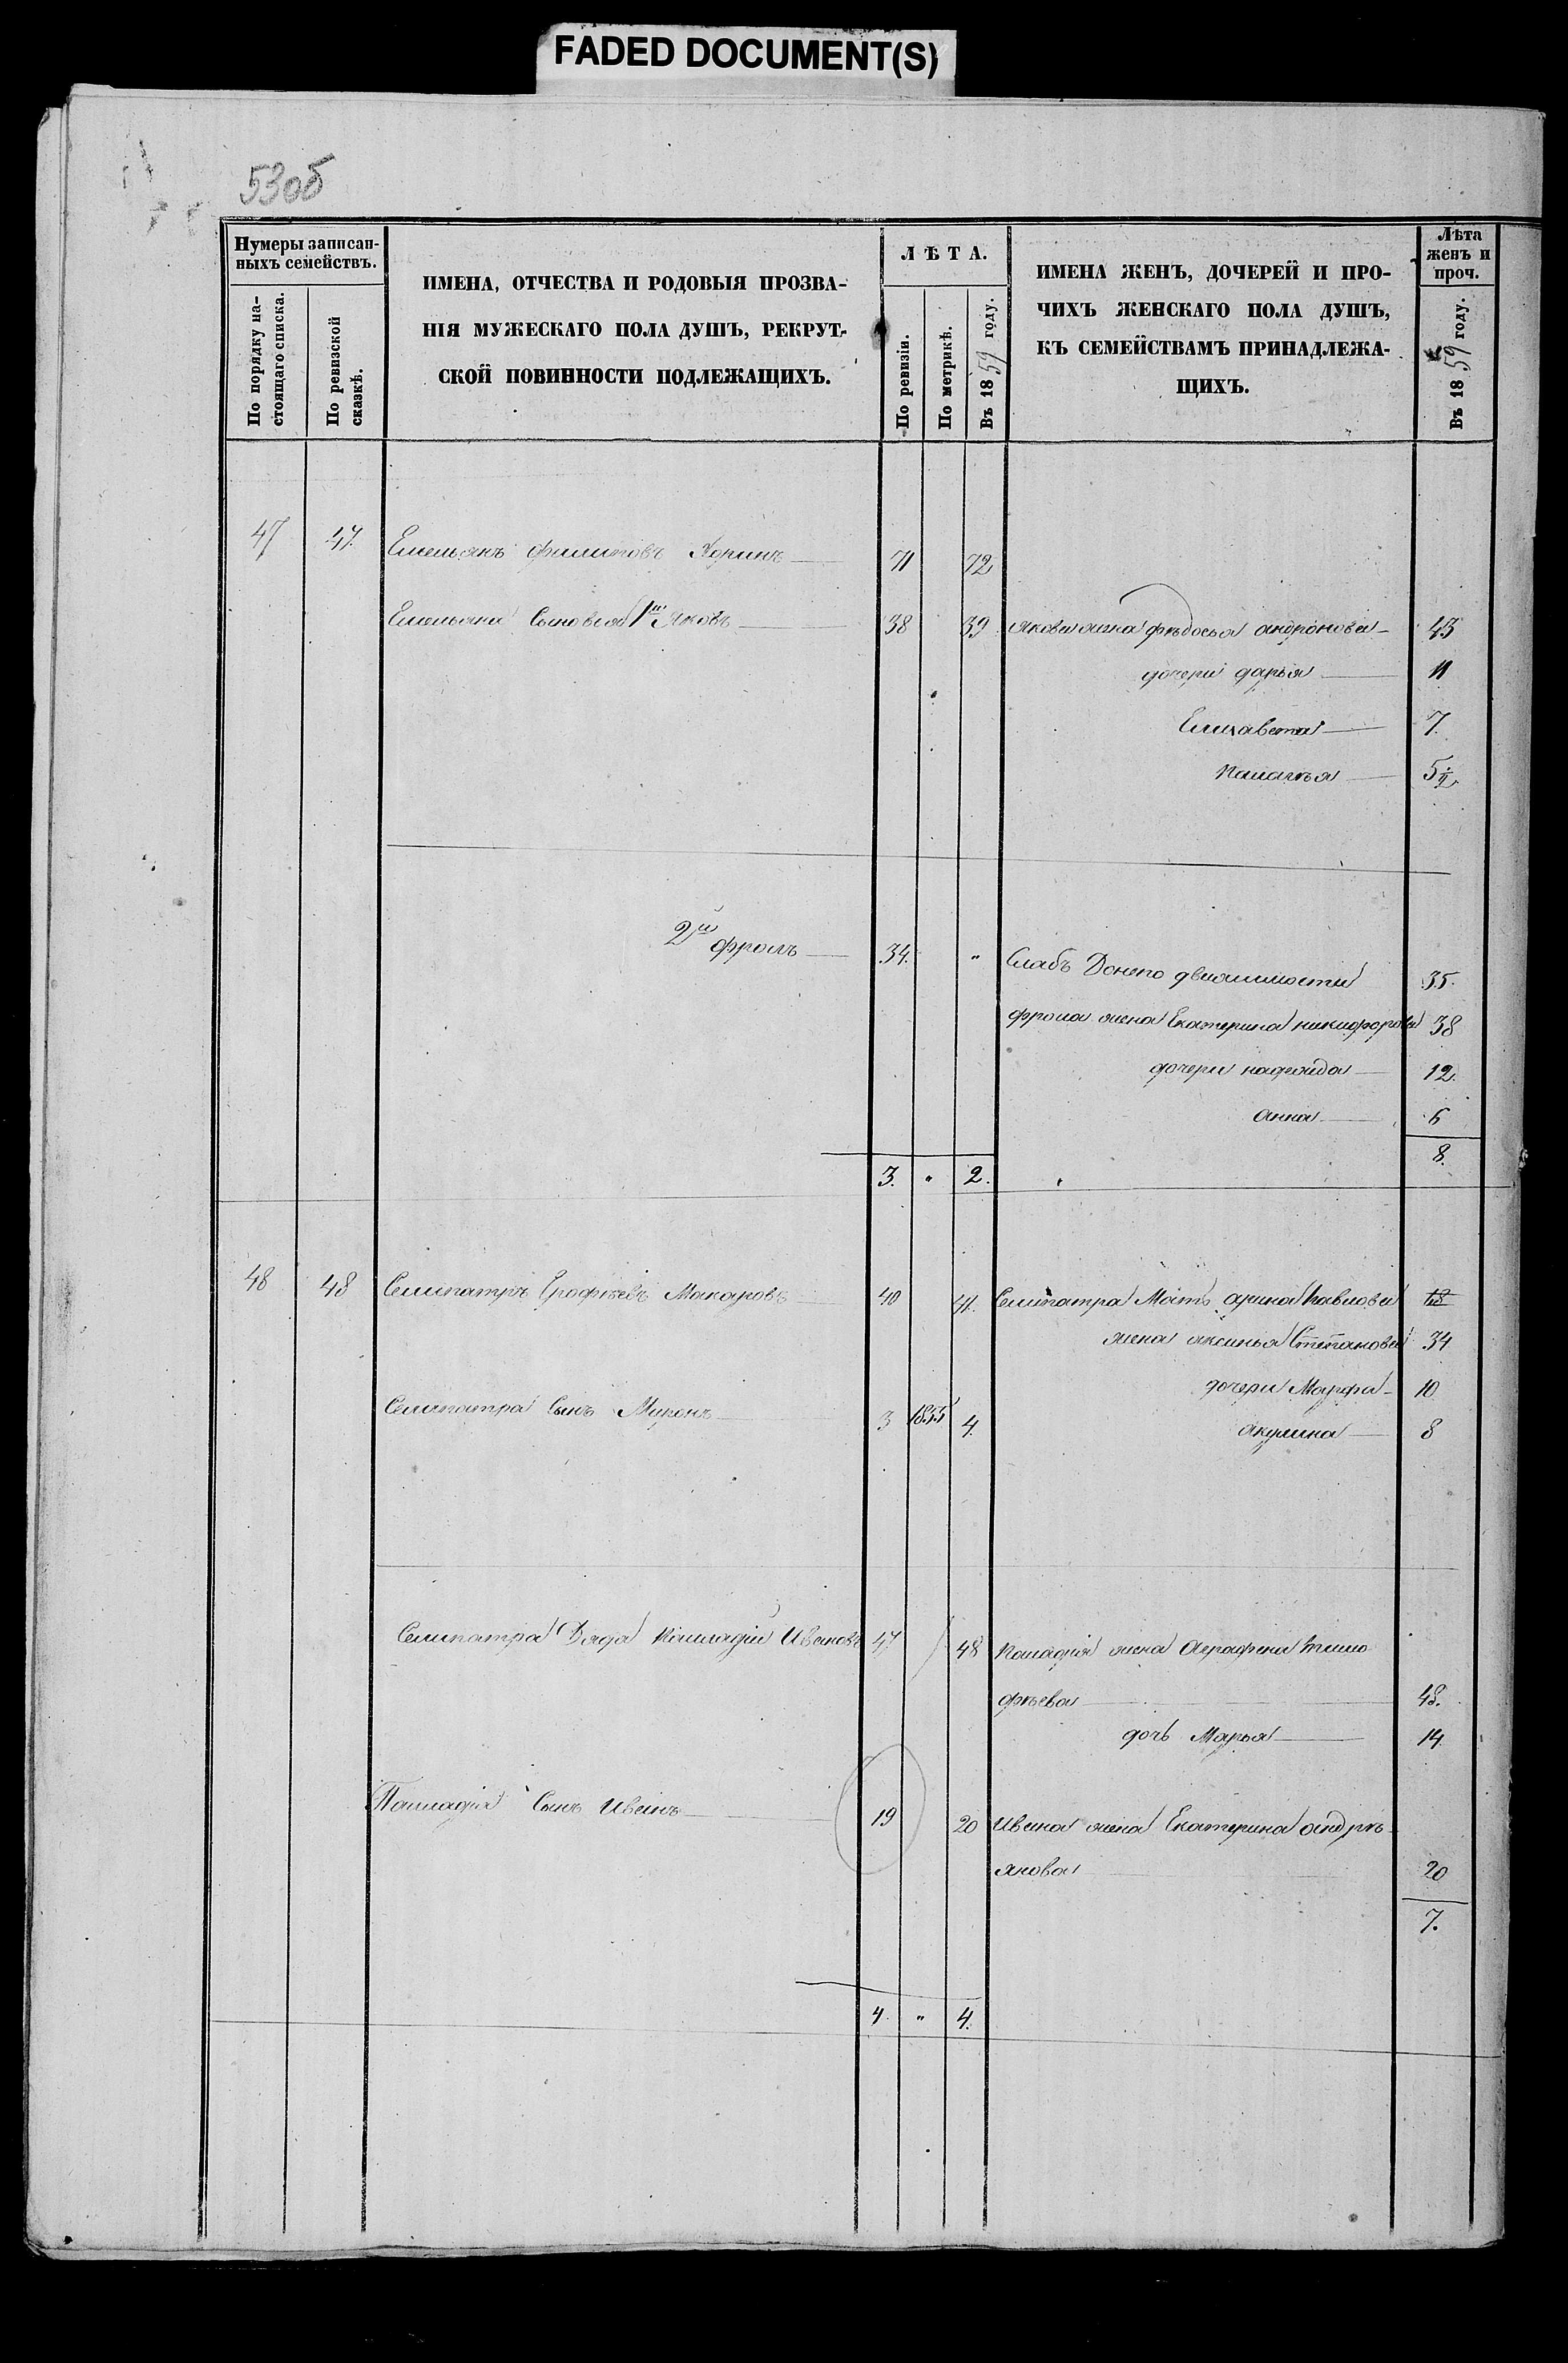 FADED DOCUMENT(S)
53об
Нумеры записан-
ныхъ семействъ.
По порядку на-
стоящаго списка.
По ревизской
сказкѣ.
ИМЕНА, ОТЧЕСТВА И РОДОВЫЯ ПРОЗВА-
НІЯ МУЖЕСКАГО ПОЛА ДУШЪ, РЕКРУТ-
СКОЙ ПОВИННОСТИ ПОДЛЕЖАЩИХЪ.
ЛѢТА.
По ревизіи.
По метрикѣ.
Въ 1859 году.
ИМЕНА ЖЕНЪ, ДОЧЕРЕЙ И ПРО-
ЧИХЪ ЖЕНСКАГО ПОЛА ДУШЪ,
КЪ СЕМЕЙСТВАМЪ ПРИНАДЛЕЖА-
ЩИХЪ.
Лѣта
женъ и
проч.
Въ 1859 году.
47 47 Емельянъ филиповъ 71 72
Емельяна Сыновья 1й Яковъ 38 39 Якова жена фѣдосья андронова 43
дочери дарья 11
Елизавета 7
Палагѣя 5½
2й фролъ 34 "
35
фрола жена Екатерина никифорова 38
дочери 12
анна 6
8.
3. " 2.
48 48 Селипатръ Ерофѣевъ Макаровъ 40 41 Селипатра Мать арина Павлова
жена аксинья Степанова 34
дочери Марфа 10
Селипатра Сынъ Миронъ 3 1855 4
акулина 8
Селипатра Дядя Палладій Ивановъ 47 48 Паладія жена Аграфена тимо
фѣева 48.
дочь Марья 14
Палладія Сынъ Иванъ 19 20 Ивана жена Екатерина андрѣ
янова 20
7.
4 " 4.